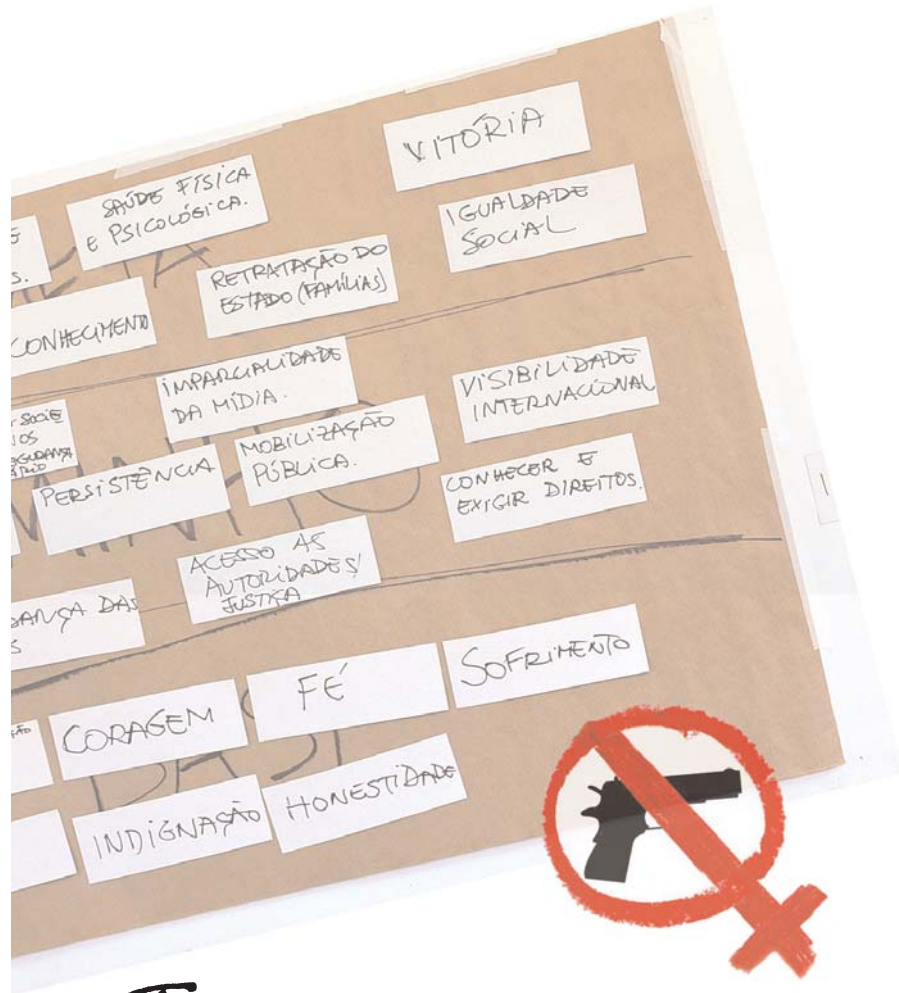 VITÓRIA
SAÚDE FÍSICA
E PSICOLÓGICA.
IGUALDADE
SOCIAL
S.
META
RETRATAÇÃO DO
ESTADO (FAMÍLIAS)
CONHECIMENTO
IMPARCIALIDADE
DA MÍDIA.
VISIBILIDADE
INTERNACIONAL
MOBILIZAÇÃO
PÚBLICA.
PERSISTÊNCIA
CONHECER E
EXIGIR DIREITOS.
MINHO
ACESSO AS
AUTORIDADES/
JUSTIÇA
DANÇA DAS
S
SOFRIMENTO
FÉ
CORAGEM
BASE
HONESTIDADE
INDIGNAÇÃO